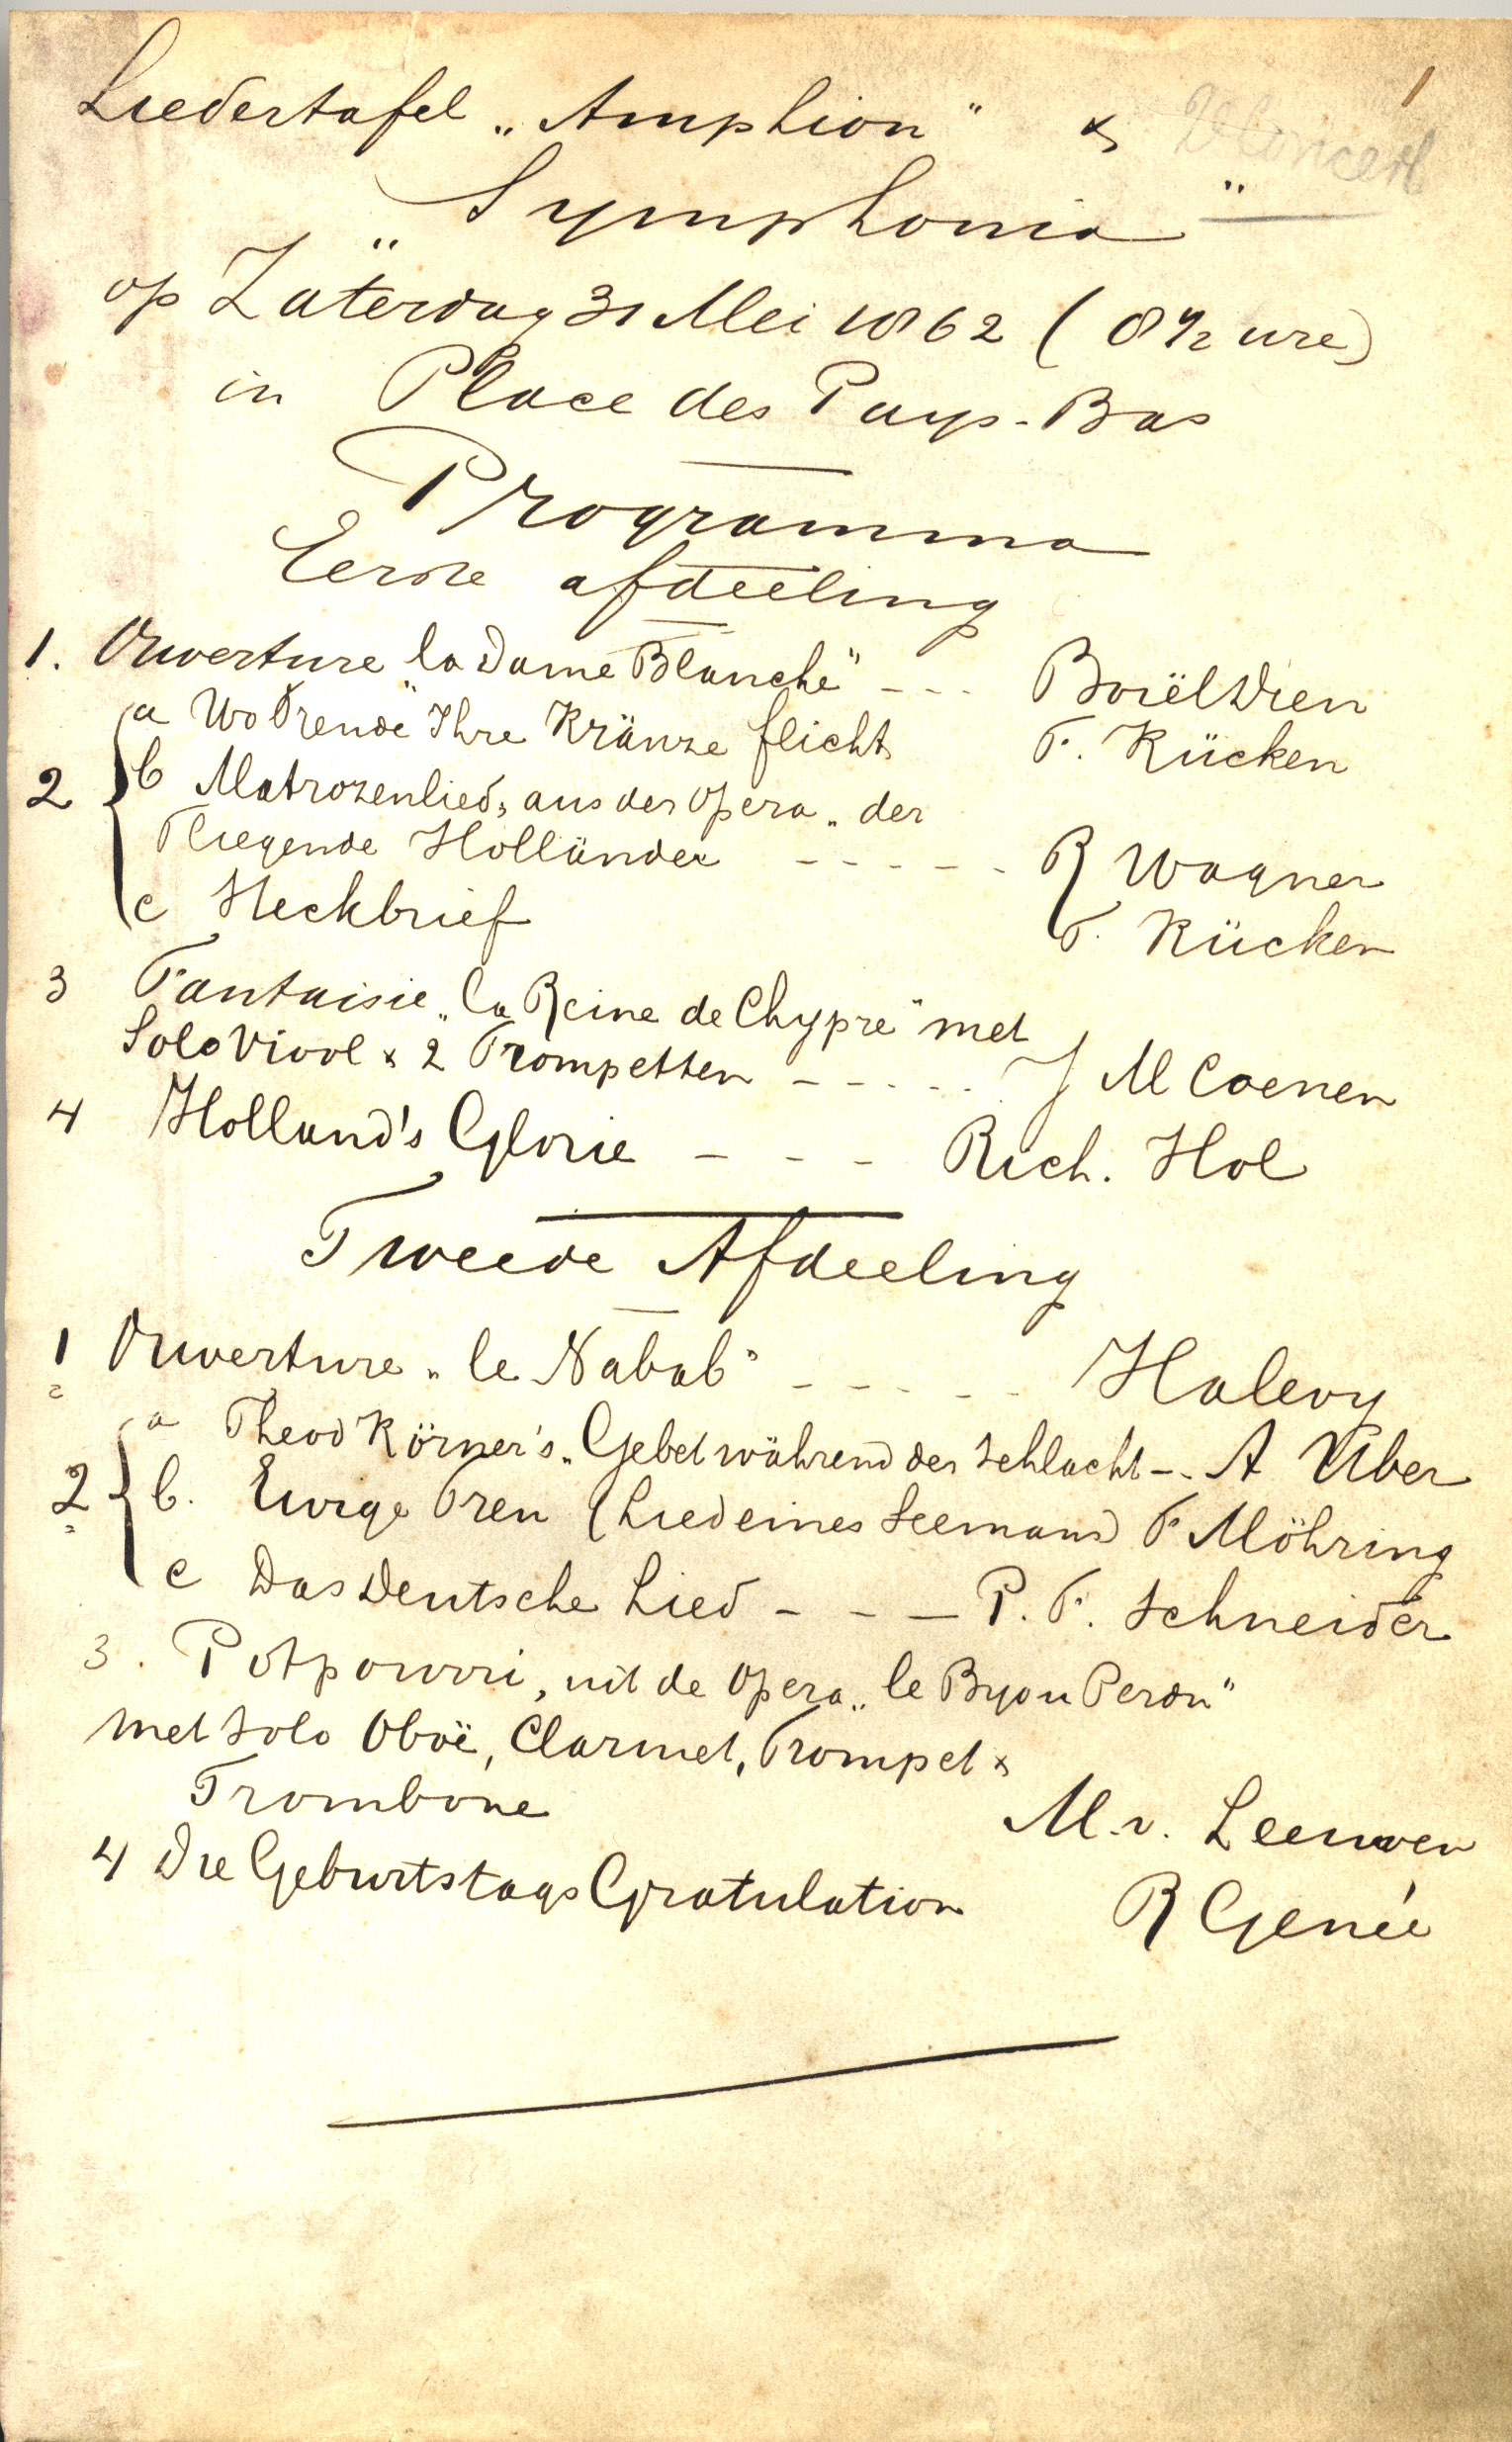 1
Liedertafel „Amphion" &
Concert
„Symphonia"
op Zaterdag 31 Mei 1862 (8 1/2 ure)
in Place des Pays-Bas
Programma
Eerste afdeeling
1. Ouverture „la Dame Blanche" - - - Boiëldien
a Wo Freude Ihre Kränze flicht F. Kücken
2 b Matrozenlied, aus der Opera „der
Fliegende Holländer - - - - - R Wagner
c Steckbrief F. Kücken
3 Fantaisie „la Reine de Chypre" met
Solo Viool & 2 Trompetten - - - - - J M Coenen
4 Holland's Glorie - - - Rich. Hol
Tweede Afdeeling
1 Ouverture „le Nabab" - - - - - Halevy
a Theod Körner's „Gebet während der Schlacht - - A Uber
2 b. Ewige Treu (Lied eines Seemans) F Möhring
c Das Deutsche Lied - - - P. F. Schneider
3. Potpourri, uit de Opera „le Byou Perdu"
met Solo Oboë, Clarinet, Trompet &
Trombone M. v. Leeuwen
4 Die Geburtstags Gratulation R Genée